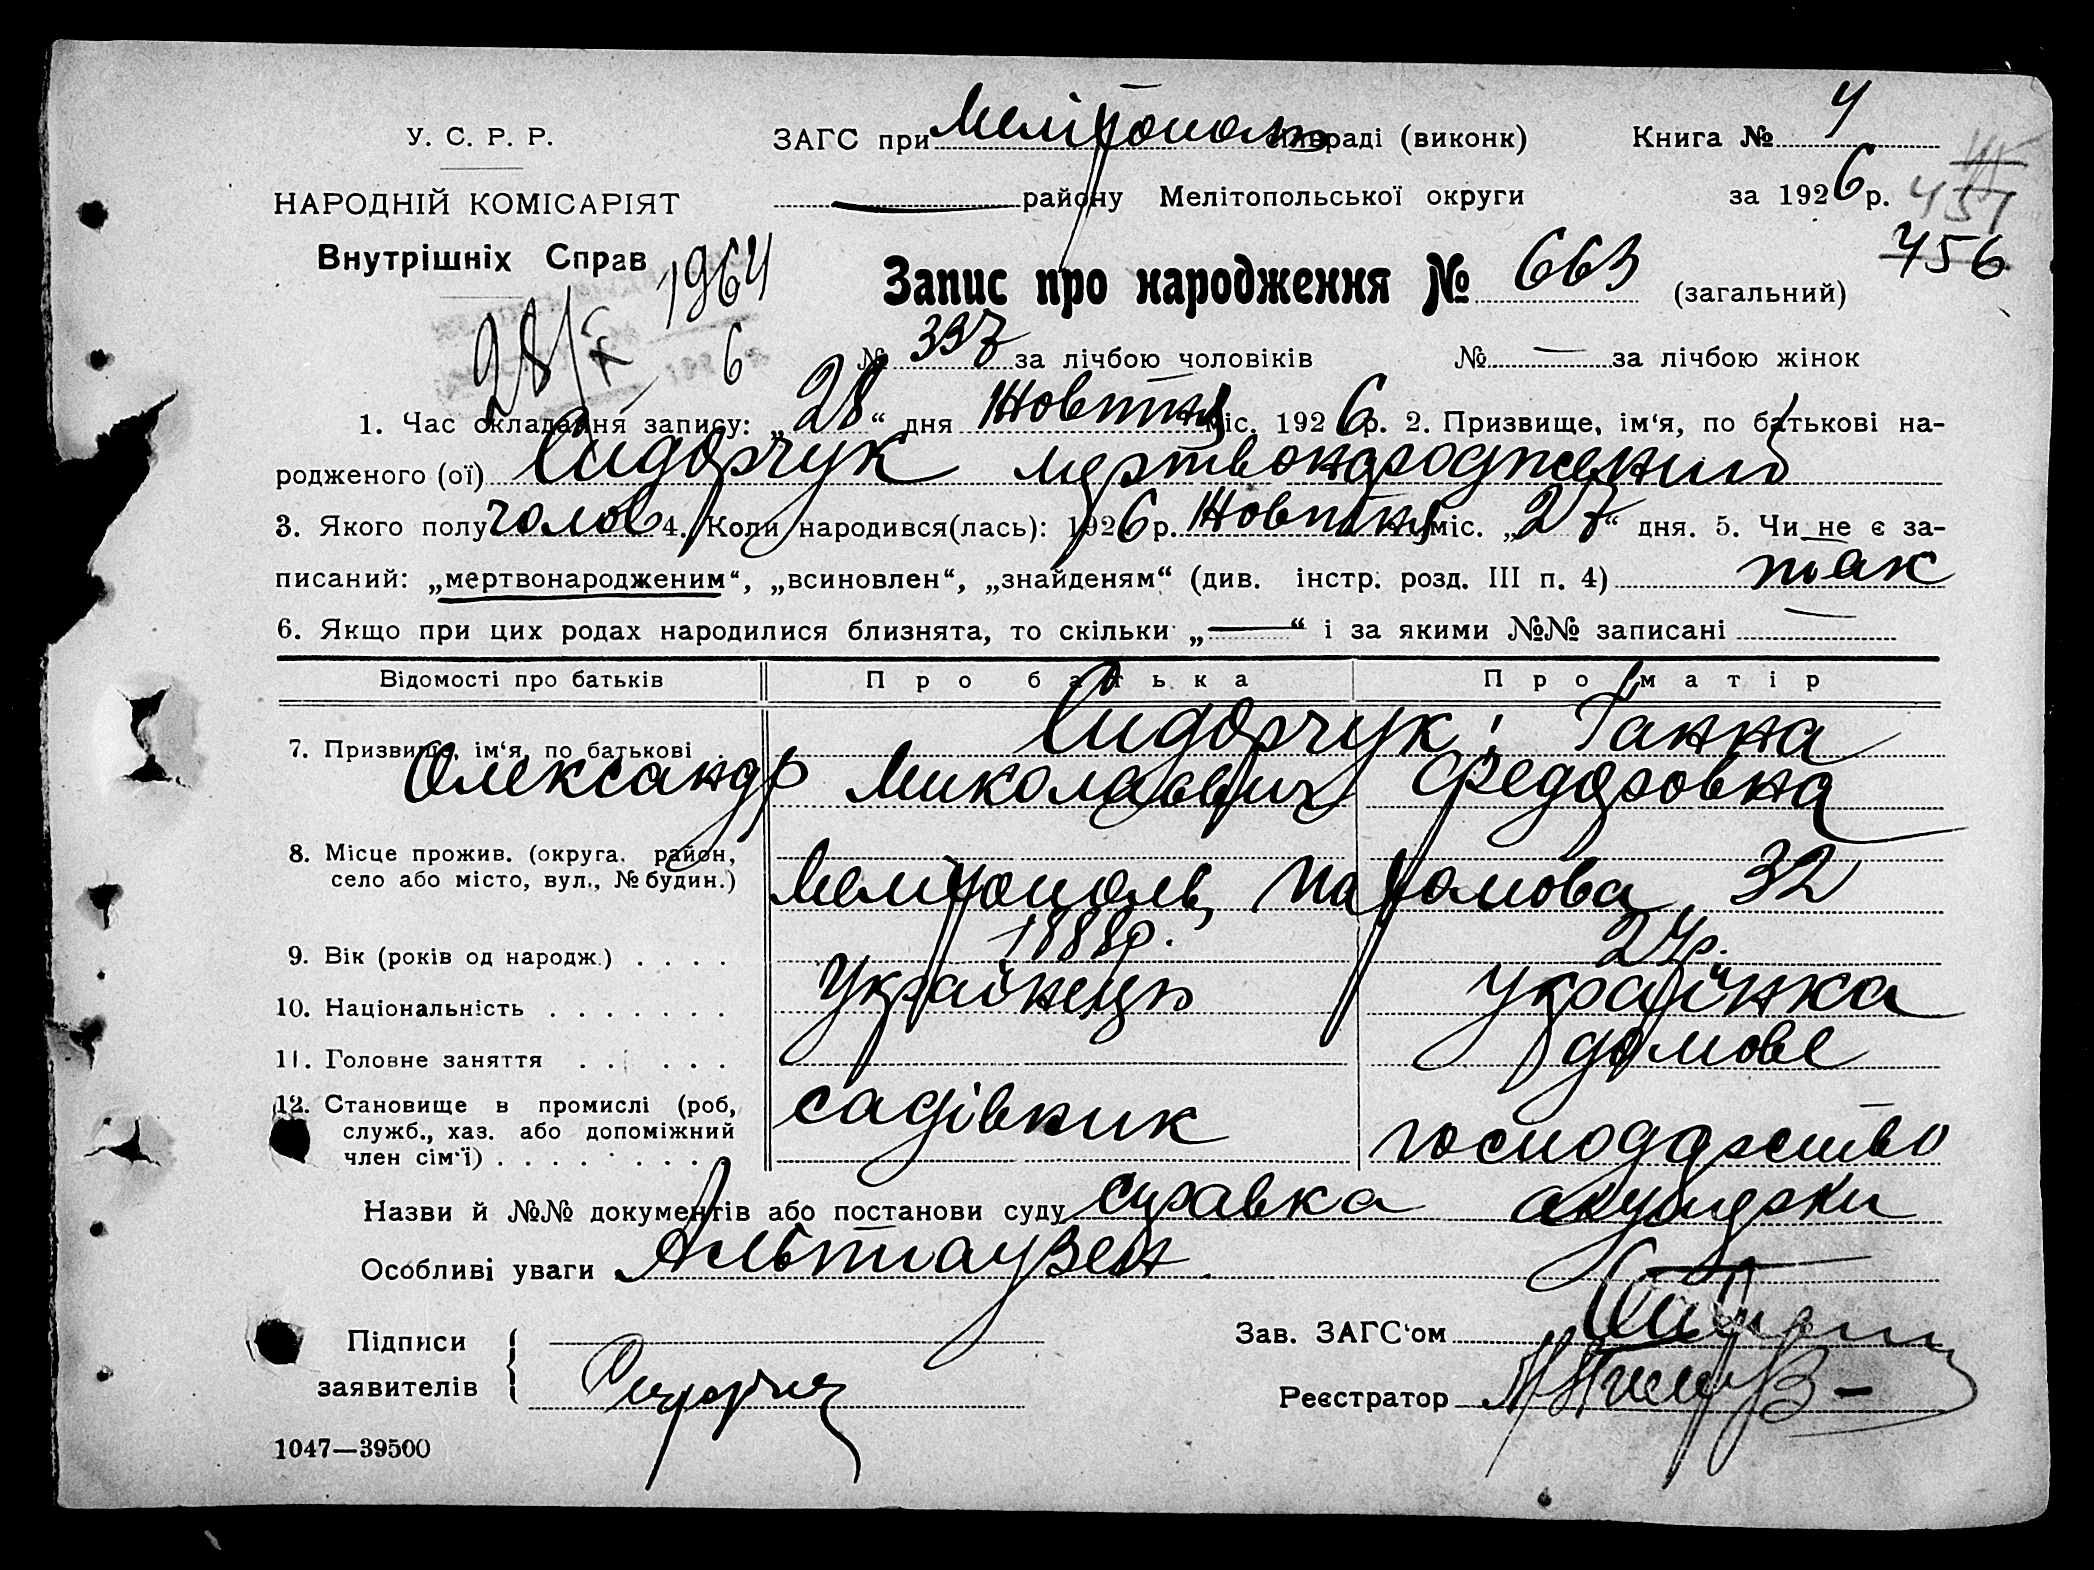 У. С. Р. Р.
НАРОДНІЙ КОМІСАРІЯТ
Внутрішніх Справ
ЗАГС при Мелітополь сільраді (виконк)
Книга № 4
району Мелітопольської округи
за 1926 р.
457
456
1964
6
28/X
Запис про народження № 663 (загальний)
№ 337 за лічбою чоловіків № — за лічбою жінок
1. Час складання запису: „28“ дня Жовтня міс. 1926 р. 2. Призвище, ім‘я, по батькові на-
родженого (ої) Сидорчук мертвонароджений
3. Якого полу чолов 4. Коли народився(лась): 1926 р. Жовтня міс. „27“ дня. 5. Чи не є за-
писаний: „мертвонародженим“, „всиновлен“, „знайденям“ (див. інстр. розд. III п. 4) так
6. Якщо при цих родах народилися близнята, то скільки „—“ і за якими №№ записані —
Відомості про батьків Про батька Про матір
7. Призвище, ім‘я, по батькові Сидорчук: Ганна
Олександр Миколаєвич Федоровна
8. Місце прожив. (округа, район,
село або місто, вул., № будин.) Мелітополь, Пахомова 32
9. Вік (років од народж.) . . . . 1888р. 27р.
10. Національність . . . . . . . Українець Українка
11. Головне заняття . . . . . . домове
12. Становище в промислі (роб,
служб., хаз. або допоміжний
член сім‘ї) . . . . . . . . садівник господарство
Назви й №№ документів або постанови суду справка акушерки
Особливі уваги Альтгаузен
Підписи
заявителів
Зав. ЗАГС‘ом
Реєстратор
1047—39500